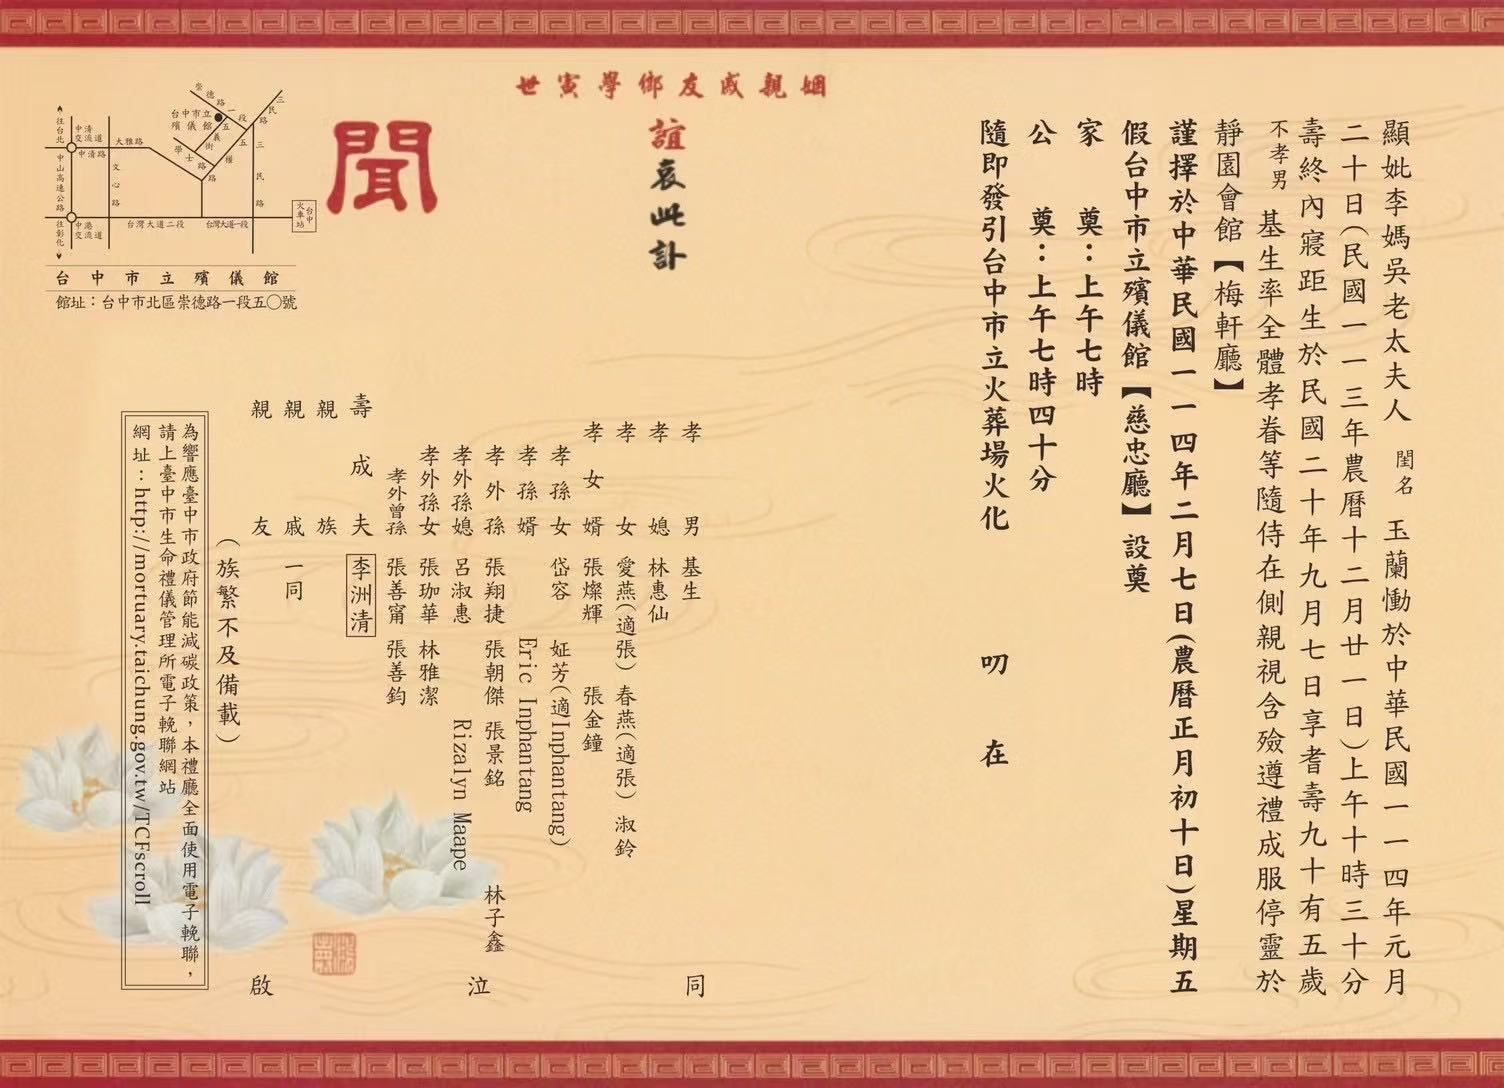 顯妣李媽吳老太夫人 閨名 玉蘭慟於中華民國一一四年元月
二十日(民國一一三年農曆十二月廿一日)上午十時三十分
壽終內寢距生於民國二十年九月七日享耆壽九十有五歲
不孝男 基生率全體孝眷等隨侍在側親視含殮遵禮成服停靈於
靜園會館【梅軒廳】
謹擇於中華民國一一四年二月七日(農曆正月初十日)星期五
假台中市立殯儀館【慈忠廳】設奠
家 奠：上午七時
公 奠：上午七時四十分
隨即發引台中市立火葬場火化 叨 在
姻親戚友鄉學寅世
誼哀此訃
聞
孝男 基生 同
孝媳 林惠仙
孝女 愛燕(適張) 春燕(適張) 淑鈴
孝女婿 張燦輝 張金鐘
孝孫女 岱容 姃芳(適Inphantang)
孝孫婿 Eric Inphantang
孝外孫 張翔捷 張朝傑 張景銘 林子鑫
孝外孫媳 呂淑惠 Rizalyn Maape 泣
孝外孫女 張珈華 林雅潔
孝外曾孫 張善甯 張善鈞
壽成夫 李洲清
親族
親戚 一同
親友 啟
(族繁不及備載)
為響應臺中市政府節能減碳政策，本禮廳全面使用電子輓聯，
請上臺中市生命禮儀管理所電子輓聯網站
網址：http://mortuary.taichung.gov.tw/TCFscroll
往台北
中山高速公路
往彰化
中清交流道
中清路
大雅路
文心路
中港交流道
台灣大道二段
台灣大道一段
崇德路一段
台中市立殯儀館
五義街
學士路
五權路
三民路
三民路
台中火車站
台中市立殯儀館
館址：台中市北區崇德路一段五〇號